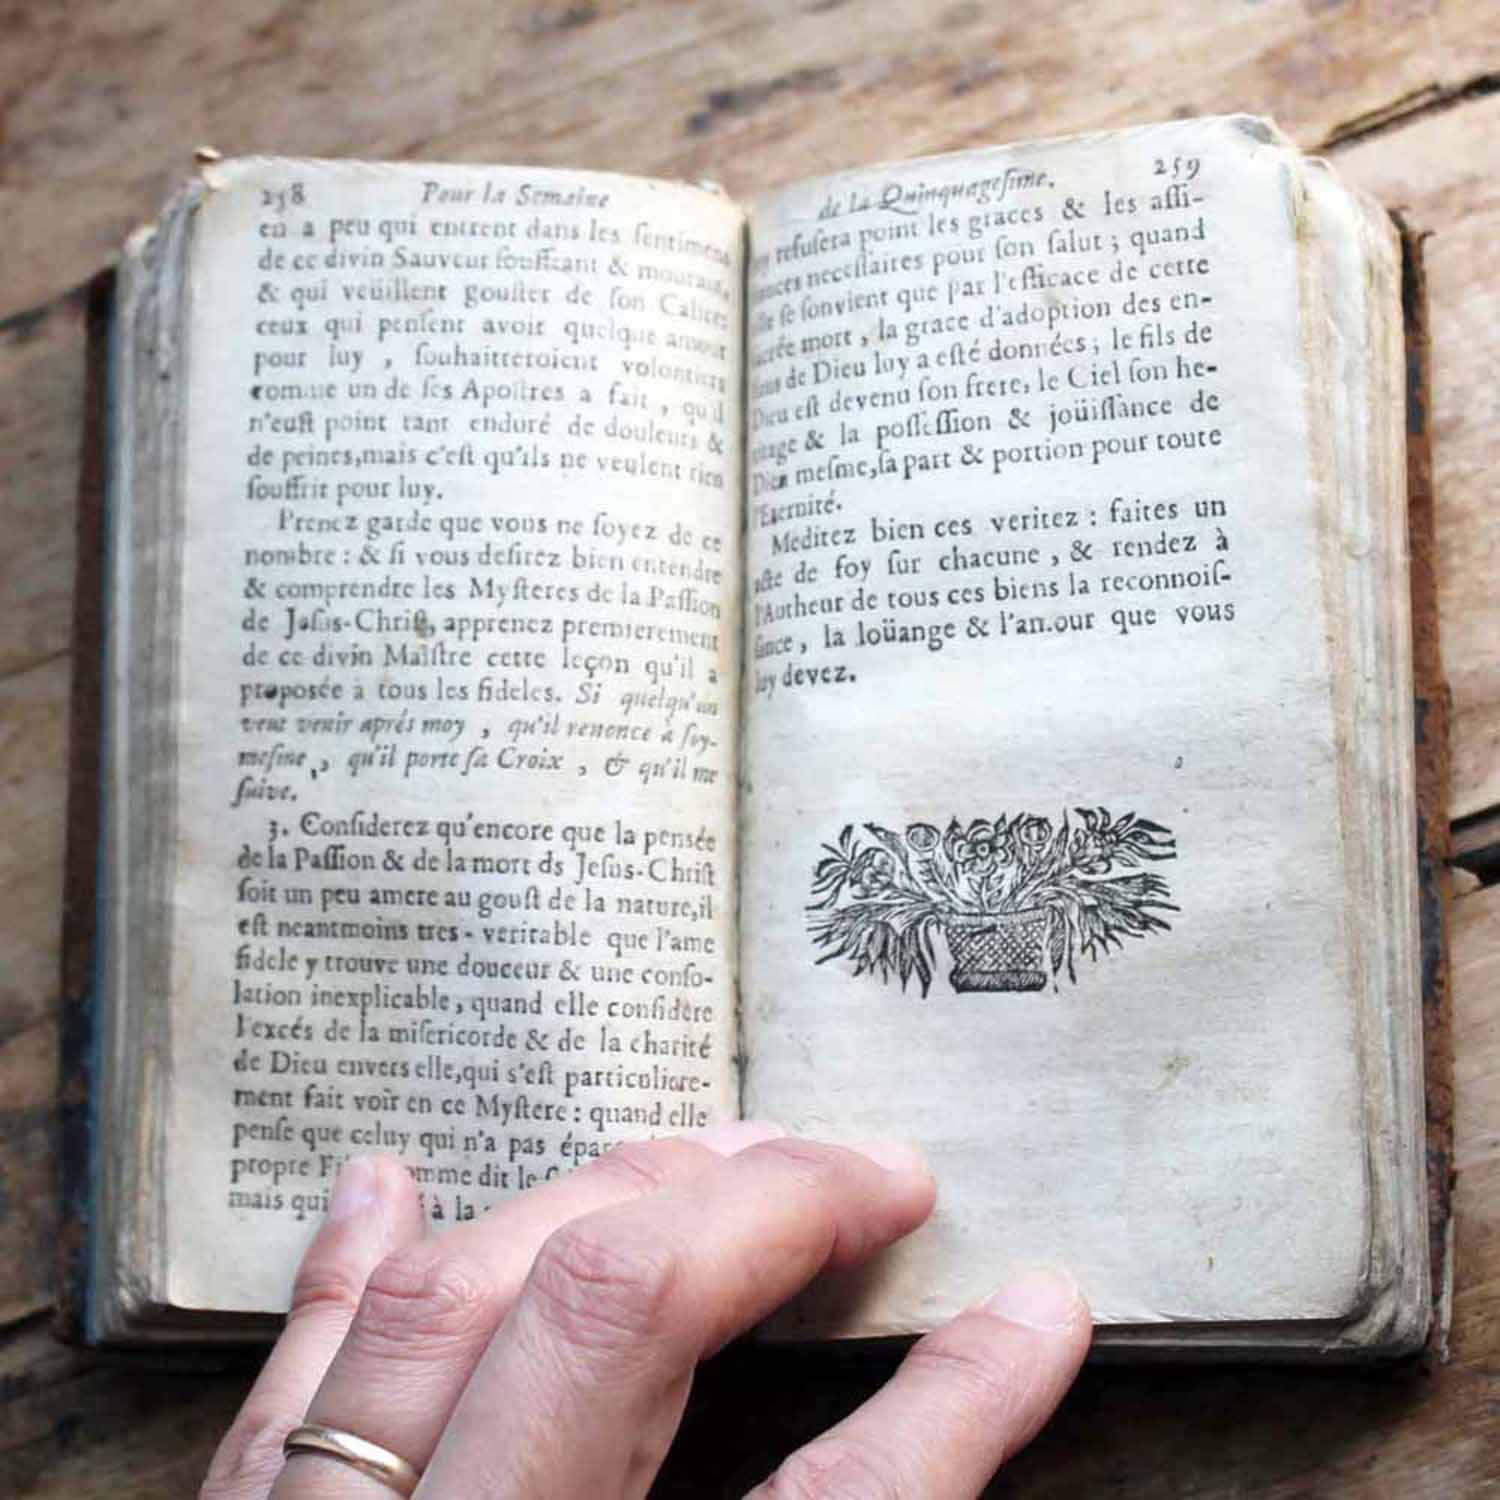 258 Pour la Semaine
en a peu qui entrent dans les ſentimens
de ce divin Sauveur ſouffrant & mourant,
& qui veüillent gouſter de ſon Calice;
ceux qui penſent avoir quelque amour
pour luy , ſouhaitteroient volontiers
comme un de ſes Apoſtres a fait , qu'il
n'euſt point tant enduré de douleurs &
de peines,mais c'eſt qu'ils ne veulent rien
ſouffrir pour luy.
Prenez garde que vous ne ſoyez de ce
nombre : & ſi vous deſirez bien entendre
& comprendre les Myſteres de la Paſſion
de Jeſus-Chriſt, apprenez premierement
de ce divin Maiſtre cette leçon qu'il a
proposée à tous les fideles. Si quelqu'un
veut venir aprés moy , qu'il renonce à ſoy-
meſme , qu'il porte ſa Croix , & qu'il me
ſuive.
3. Conſiderez qu'encore que la pensée
de la Paſſion & de la mort ds Jeſus-Chriſt
ſoit un peu amere au gouſt de la nature,il
eſt neantmoins tres-veritable que l'ame
fidele y trouve une douceur & une conſo-
lation inexplicable, quand elle conſidère
l'excés de la miſericorde & de la charité
de Dieu envers elle,qui s'eſt particuliere-
ment fait voir en ce Myſtere : quand elle
penſe que celuy qui n'a pas
propre dit le
mais qui à la
de la Quinquageſime. 259
refuſera point les graces & les aſſi-
neceſſaires pour ſon ſalut ; quand
ſe ſonvient que par l'efficace de cette
mort , la grace d'adoption des en-
de Dieu luy a eſté données ; le fils de
Dieu eſt devenu ſon frere, le Ciel ſon he-
& la poſſeſſion & joüiſſance de
Dieu meſme,ſa part & portion pour toute
l'Eternité.
Meditez bien ces veritez : faites un
acte de foy ſur chacune , & rendez à
l'Autheur de tous ces biens la reconnoiſ-
ſance , la loüange & l'amour que vous
luy devez.